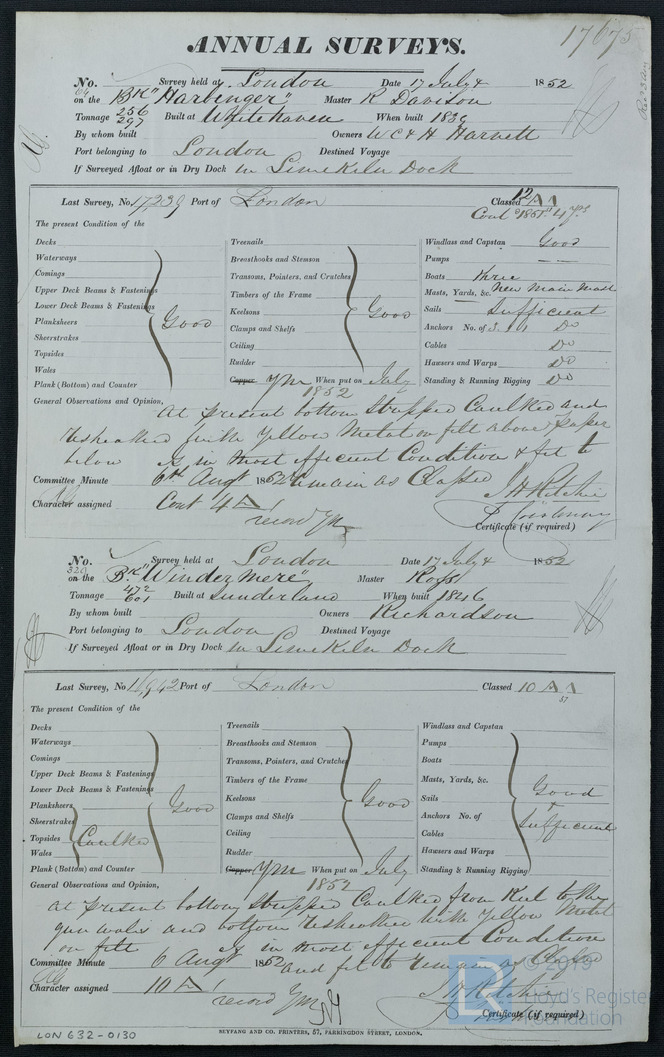 17675
ANNUAL SURVEYS.
No. Survey held at London Date 17 July & 1852
on the Bk "Harbinger" Master R Davison
Tonnage 256 297 Built at Whitehaven When built 1839
By whom built Owners W C & H Harnett
Port belonging to London Destined Voyage
If Surveyed Afloat or in Dry Dock in Lime Kiln Dock
Last Survey, No 17239 Port of London Classed 12 A 1
Cont d 1851 4 yrs
The present Condition of the
Decks
Waterways
Comings
Upper Deck Beams & Fastenings
Lower Deck Beams & Fastenings
Planksheers
Sheerstrakes
Topsides
Wales
Plank (Bottom) and Counter
Good
Treenails
Breasthooks and Stemson
Transoms, Pointers, and Crutches
Timbers of the Frame
Keelsons
Clamps and Shelfs
Ceiling
Rudder
Copper YM When put on July
1852
Good
Windlass and Capstan Good
Pumps
Boats three
Masts, Yards, &c. New Main Mast
Sails Sufficient
Anchors No. of 3.1.1 Do
Cables Do
Hawsers and Warps Do
Standing & Running Rigging Do
General Observations and Opinion, At present bottom Stripped Caulked and
resheathed with Yellow Metal on felt above & paper
below is in most efficient Condition & fit to
Committee Minute 6th Augt 1852 remain as Classed
Character assigned Cont 4 A 1 J H Ritchie
record YM
Certificate (if required)
No. 320 Survey held at London Date 17 July & 1852
on the Bk "Windermere" Master Ross
Tonnage 472 601 Built at Sunderland When built 1846
By whom built Owners Richardson
Port belonging to London Destined Voyage
If Surveyed Afloat or in Dry Dock in Lime Kiln Dock
Last Survey, No 16942 Port of London Classed 10 A 1
51
The present Condition of the
Decks
Waterways
Comings
Upper Deck Beams & Fastenings
Lower Deck Beams & Fastenings
Planksheers
Sheerstrakes
Topsides Caulked
Wales
Plank (Bottom) and Counter
Good
Treenails
Breasthooks and Stemson
Transoms, Pointers, and Crutches
Timbers of the Frame
Keelsons
Clamps and Shelfs
Ceiling
Rudder
Copper YM When put on July
1852
Good
Windlass and Capstan
Pumps
Boats
Masts, Yards, &c.
Sails
Anchors No. of
Cables
Hawsers and Warps
Standing & Running Rigging
Good
&
Sufficient
General Observations and Opinion,
At present bottom Stripped Caulked from Keel to the
gunwales and bottom resheathed with Yellow Metal
on felt is in most efficient Condition
Committee Minute 6 Augt 1852 and fit to remain as Classed
Character assigned 10 A 1 J H Ritchie
record YM
Certificate (if required)
LON 632-0130
SEYFANG AND CO. PRINTERS, 57, FARRINGDON STREET, LONDON.
© 2019
Lloyd's Register
Foundation